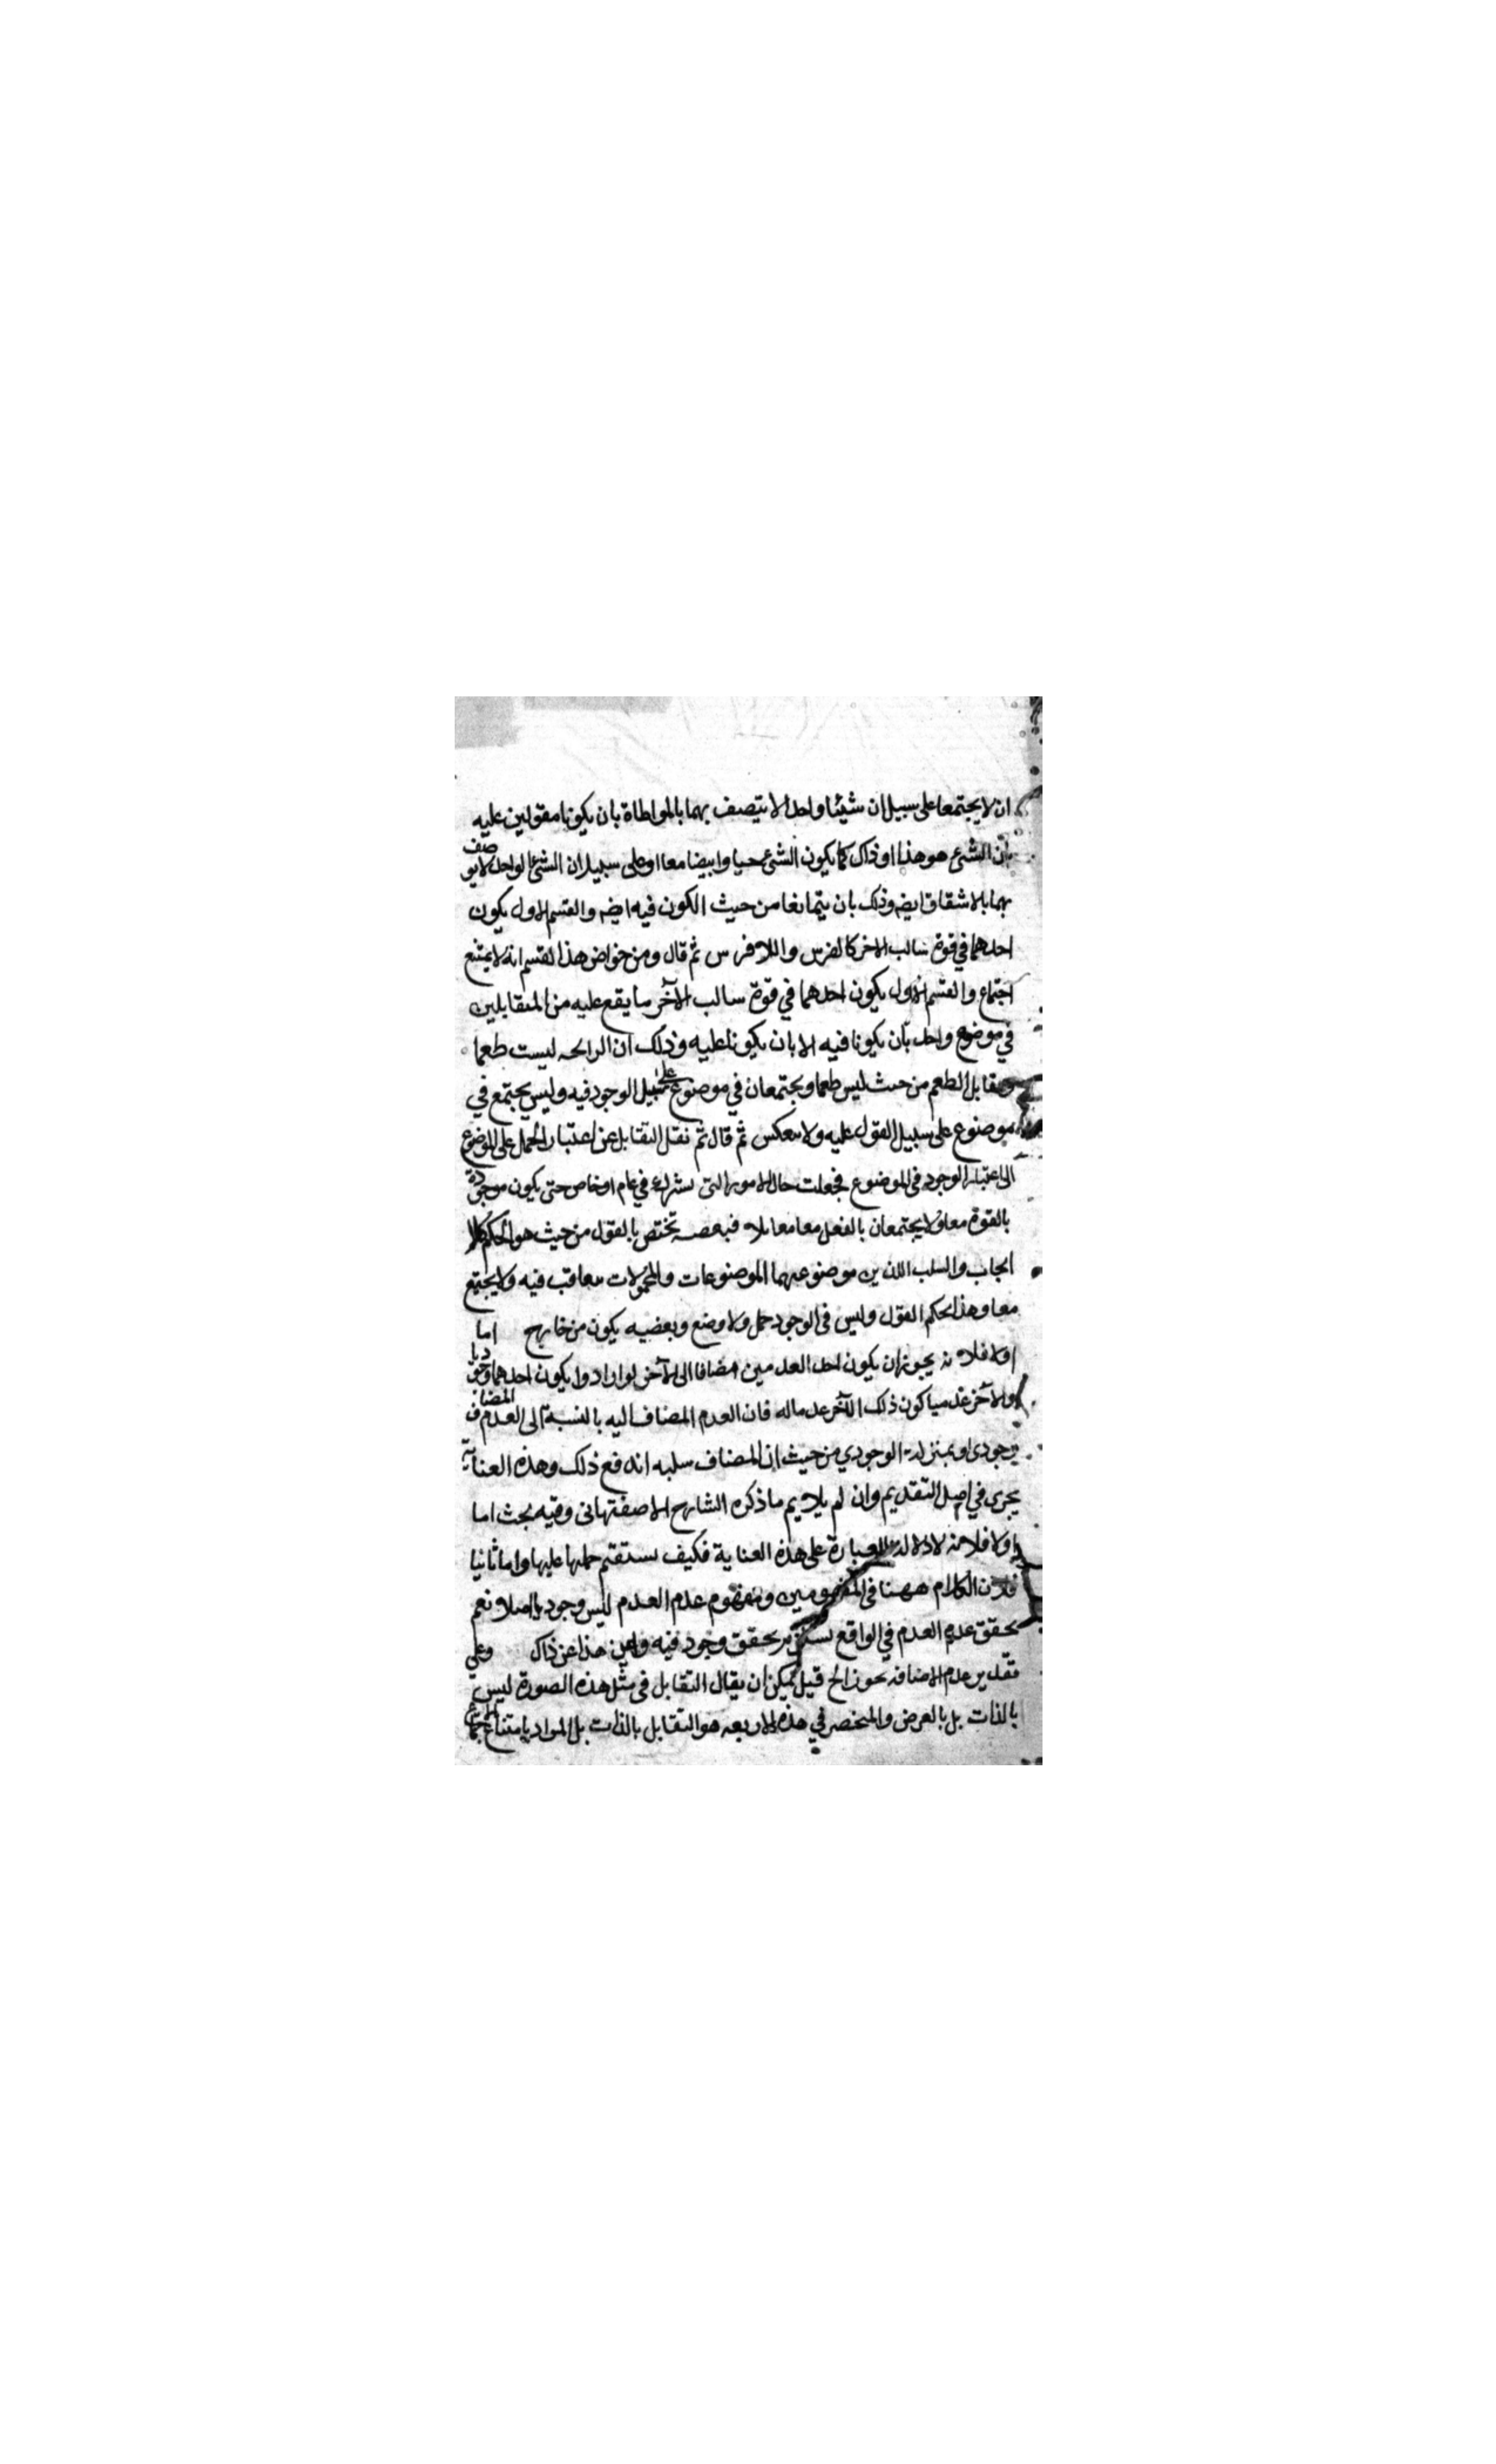 ان لا يجتمعا على سبيل ان شيئا واحدا لا يتصف بهما بالمواطاة بان يكونا مقولين عليه
بان الشئ هو هذا او ذاك كما يكون الشئ حيا وابيضا معا او على سبيل ان الشئ الواحد لا يوصف
بهما بالاشقاق ايضه وذلك بان يتمانعا من حيث الكون فيه ايضه والقسم الاول يكون
احدهما في قوة سالب الاخر كالفرس واللا فرس ثم قال ومن خواص هذا القسم انه لا يمتنع
اجتماع والقسم الاول يكون احدهما في قوة سالب الآخر ما يقع عليه من المتقابلين
في موضوع واحد بان يكونا فيه الا بان يكونا عليه وذلك ان الرايحه ليست طعما
ومقابل الطعم من حيث ليس طعما ويجتمعان في موضوع على سبيل الوجود فيه وليس يجتمع في
موضوع على سبيل القول عليه ولا ينعكس ثم قال ثم نقل التقابل عن اعتبار الحمل على الموضوع
الى اعتبار الوجود في الموضوع فجعلت حال الامور التى تشترك في عام او خاص حتى يكون موجودة
بالقوة معا ولا يجتمعان بالفعل معا مقابلا فبعضه تختص بالقول من حيث هو الحكم كالا
يجاب والسلب اللذين موضوعهما الموضوعات والمحمولات يتعاقب فيه ولا يجتمع
معا وهذا بحكم القول وليس في الوجود حمل ولا وضع وبعضه يكون من خارج اما
اولا فلانه يجوز ان يكون احد العدمين مضافا الى الآخر لو ارادوا يكون احدهما وجوديا
والآخر عدميا كون ذلك الآخر عدما له فان العدم المضاف اليه بالنسبة الى العدم المضاف
وجودى او بمنزلة الوجودي من حيث ان المضاف سلبه اندفع ذلك وهذه العناية
يجرى في اصل التقديم وان لم يلايم ما ذكره الشارح الاصفهانى وفيه بحث اما
اولا فلانه لا دلالة للعبارة على هذه العناية فكيف يستقيم حملها عليها واما ثانيا
فلان الكلام ههنا في المفهومين ومفهوم عدم العدم ليس وجوديا اصلا نعم
تحقق عدم العدم في الواقع يستلزم تحقق وجود فيه واين هذا عن ذاك وعلى
تقدير عدم الاضافه يجوز الخ قيل يمكن ان يقال التقابل في مثل هذه الصورة ليس
بالذات بل بالعرض والمنحصر في هذه الاربعه هو التقابل بالذات بل المراد بامتناع اجتماع